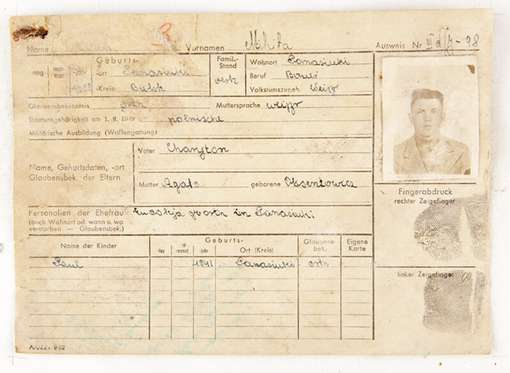 Name Vornamen Mikita Ausweis Nr
Geburts- Familienstand Wohnort Sanasiuki
Tag Monat Jahr Ort Sanasiuki verh Beruf Bauer
Kreis Bielsk Volkstumszugeh. Weißr
Glaubensbekenntnis orth Muttersprache weißr
Staatsangehörigkeit am 1. 9. 1939 polnische
Militärische Ausbildung (Waffengattung)
Name, Geburtsdaten, -ort
Glaubensbek. der Eltern
Vater Charyton
Mutter Agata geborene
Fingerabdruck
rechter Zeigefinger
Personalien der Ehefrau
(auch Wohnort od. wann u. wo
verstorben — Glaubensbek.)
Name der Kinder Geburts- Glaubensbek. Eigene Karte
Tag Monat Jahr Ort (Kreis)
Paul 1941 Sanasiuki orth
linker Zeigefinger